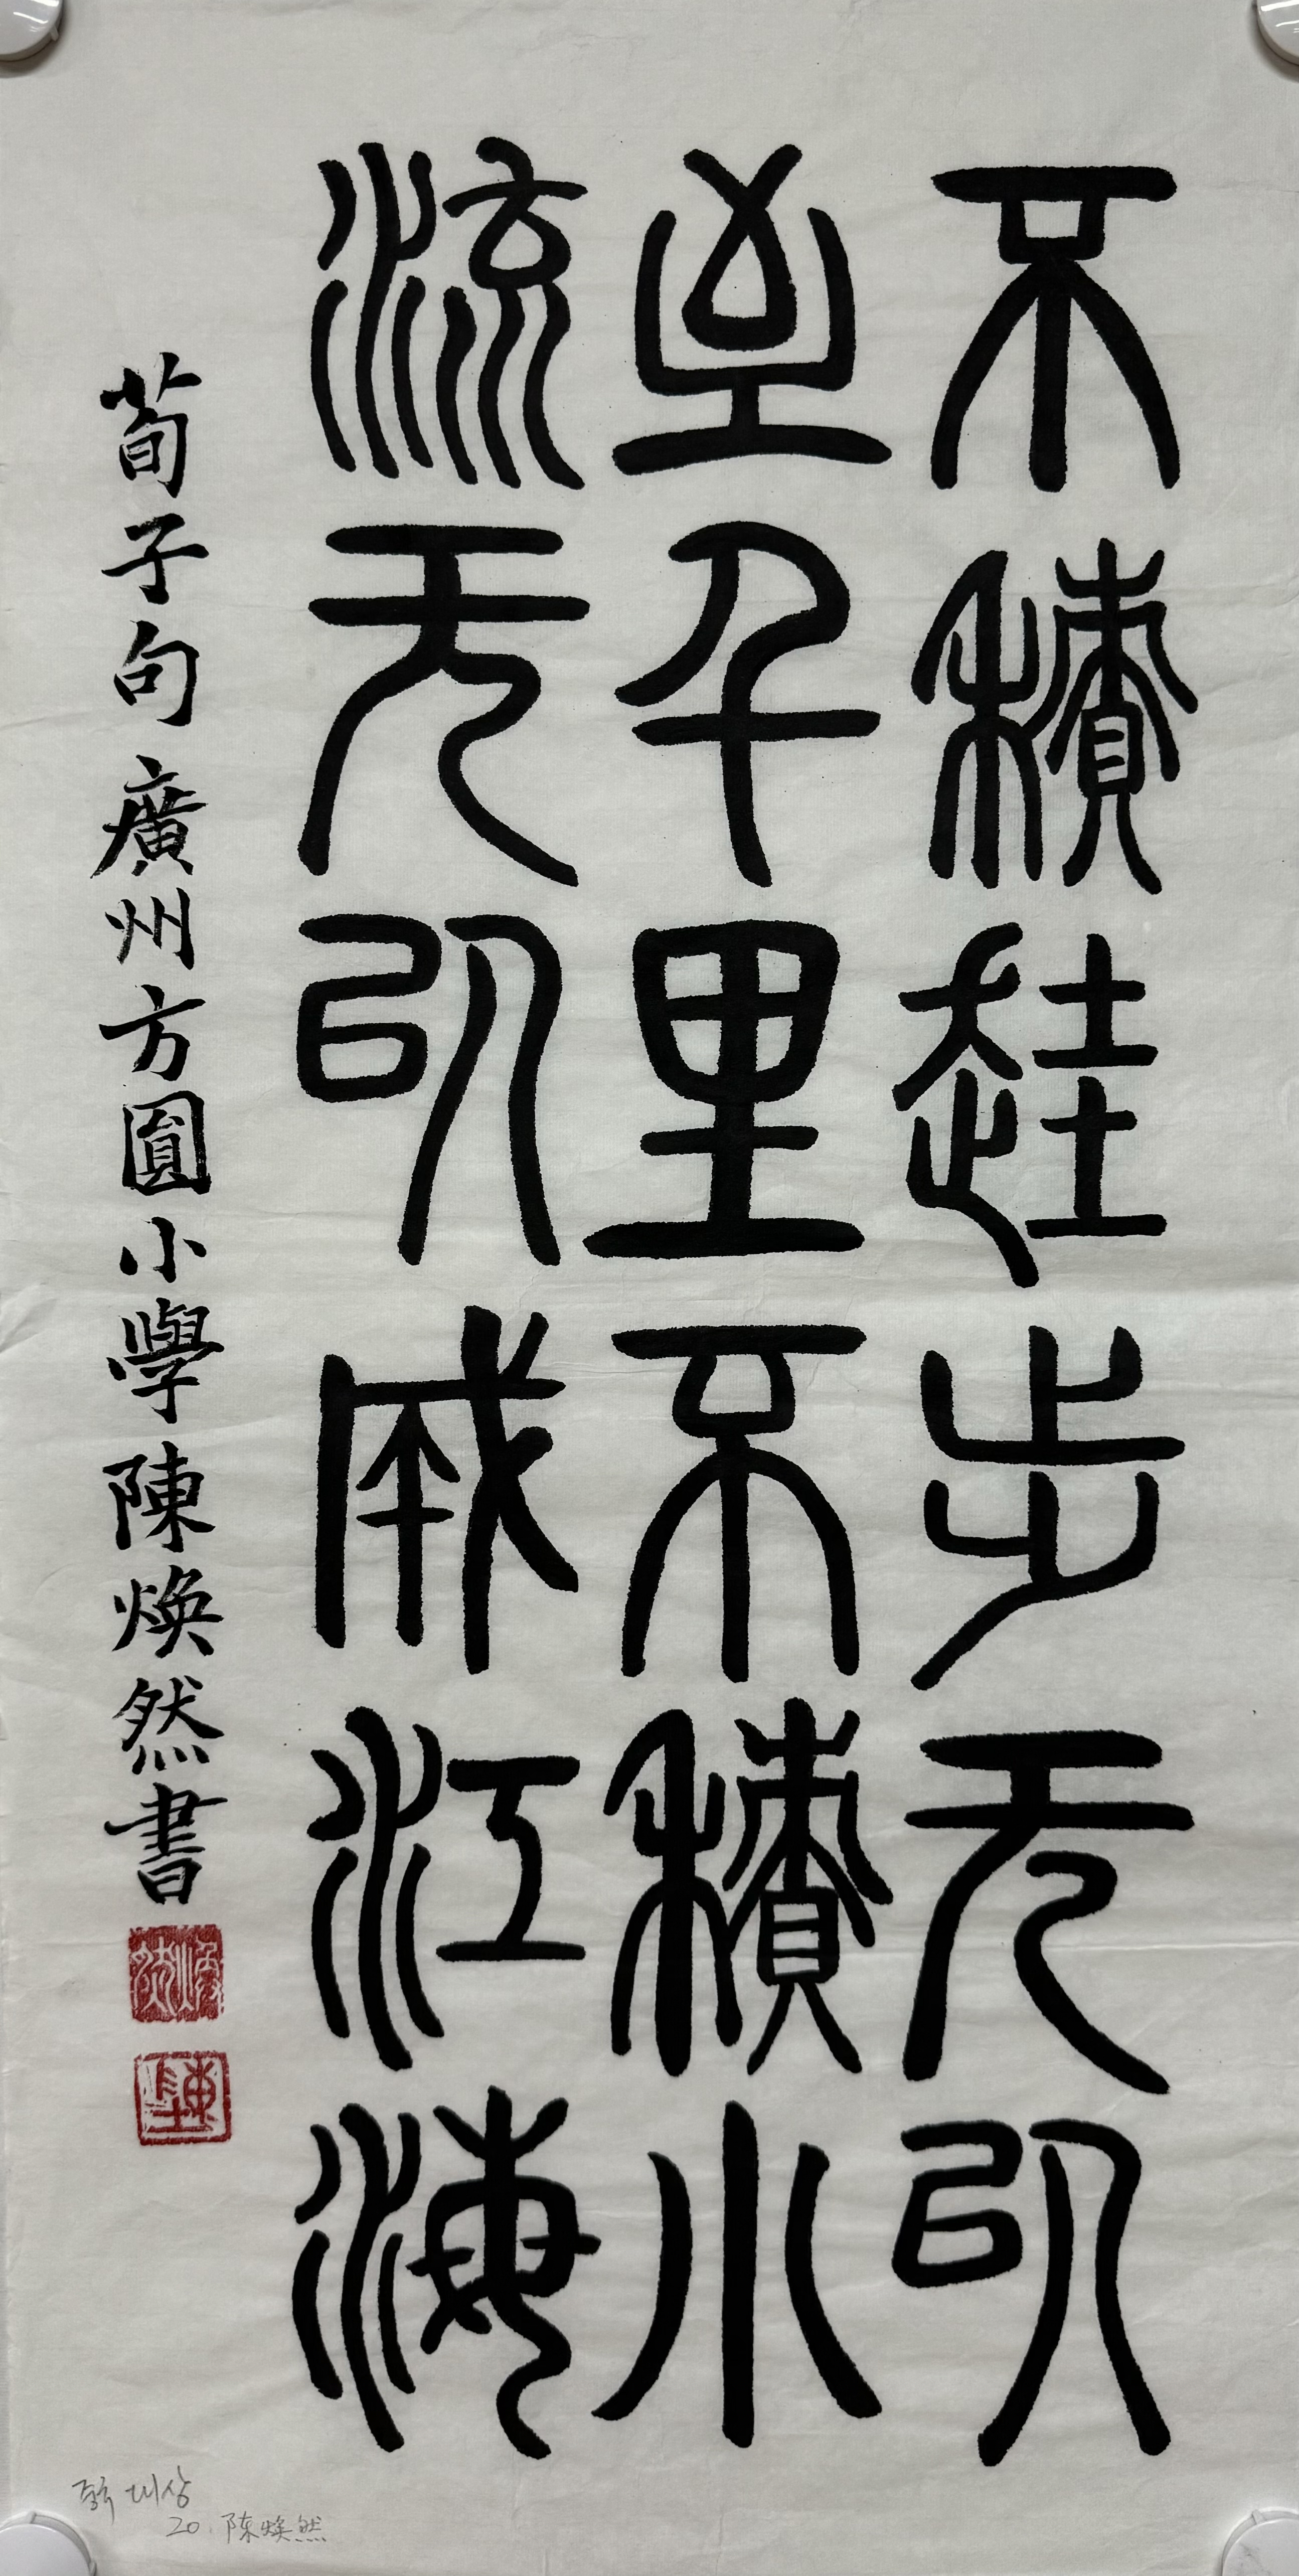 不積跬步无以
至千里不積小
流无以成江海
荀子句 廣州方圓小學 陳煥然書
대상
20. 陈焕然